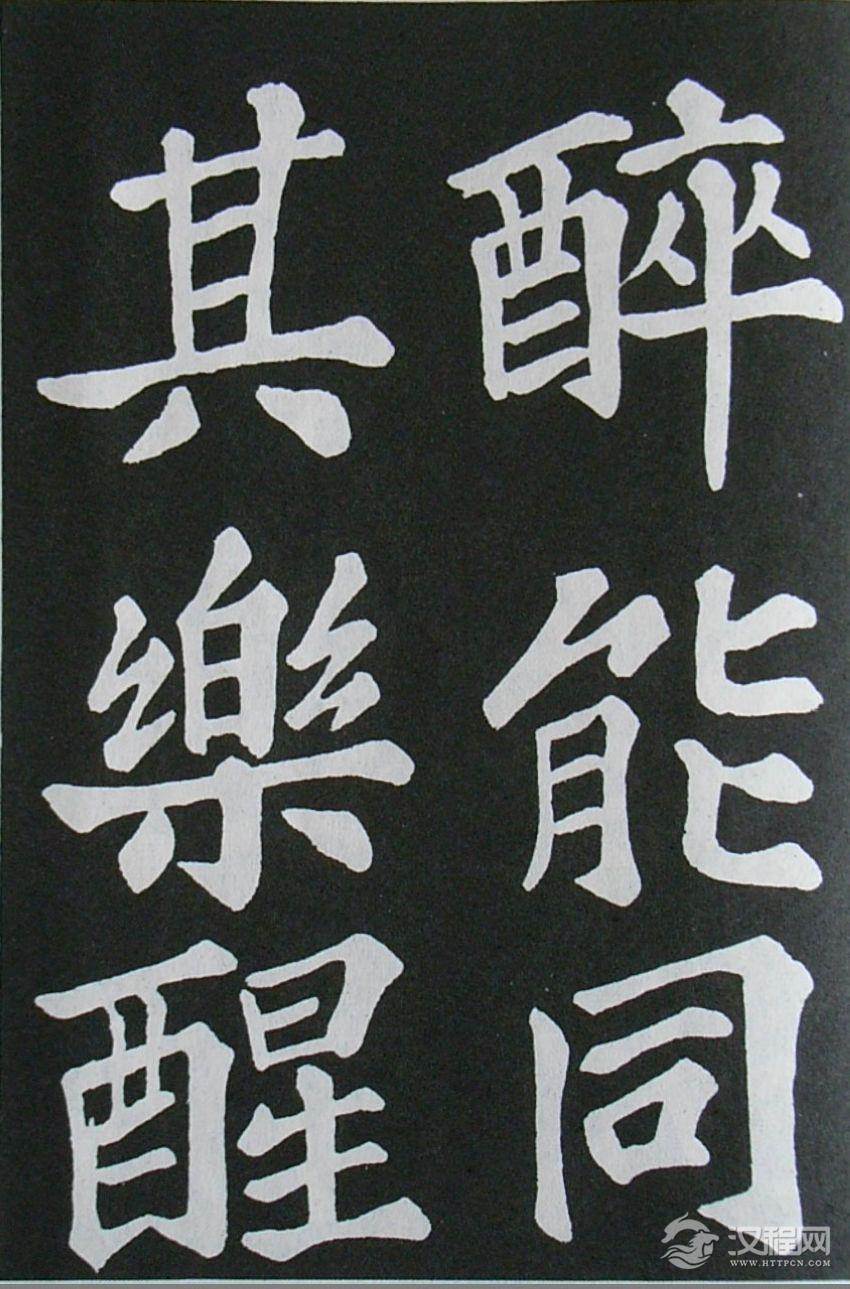 醉能同
其樂醒
汉程网
WWW.HTTPCN.COM